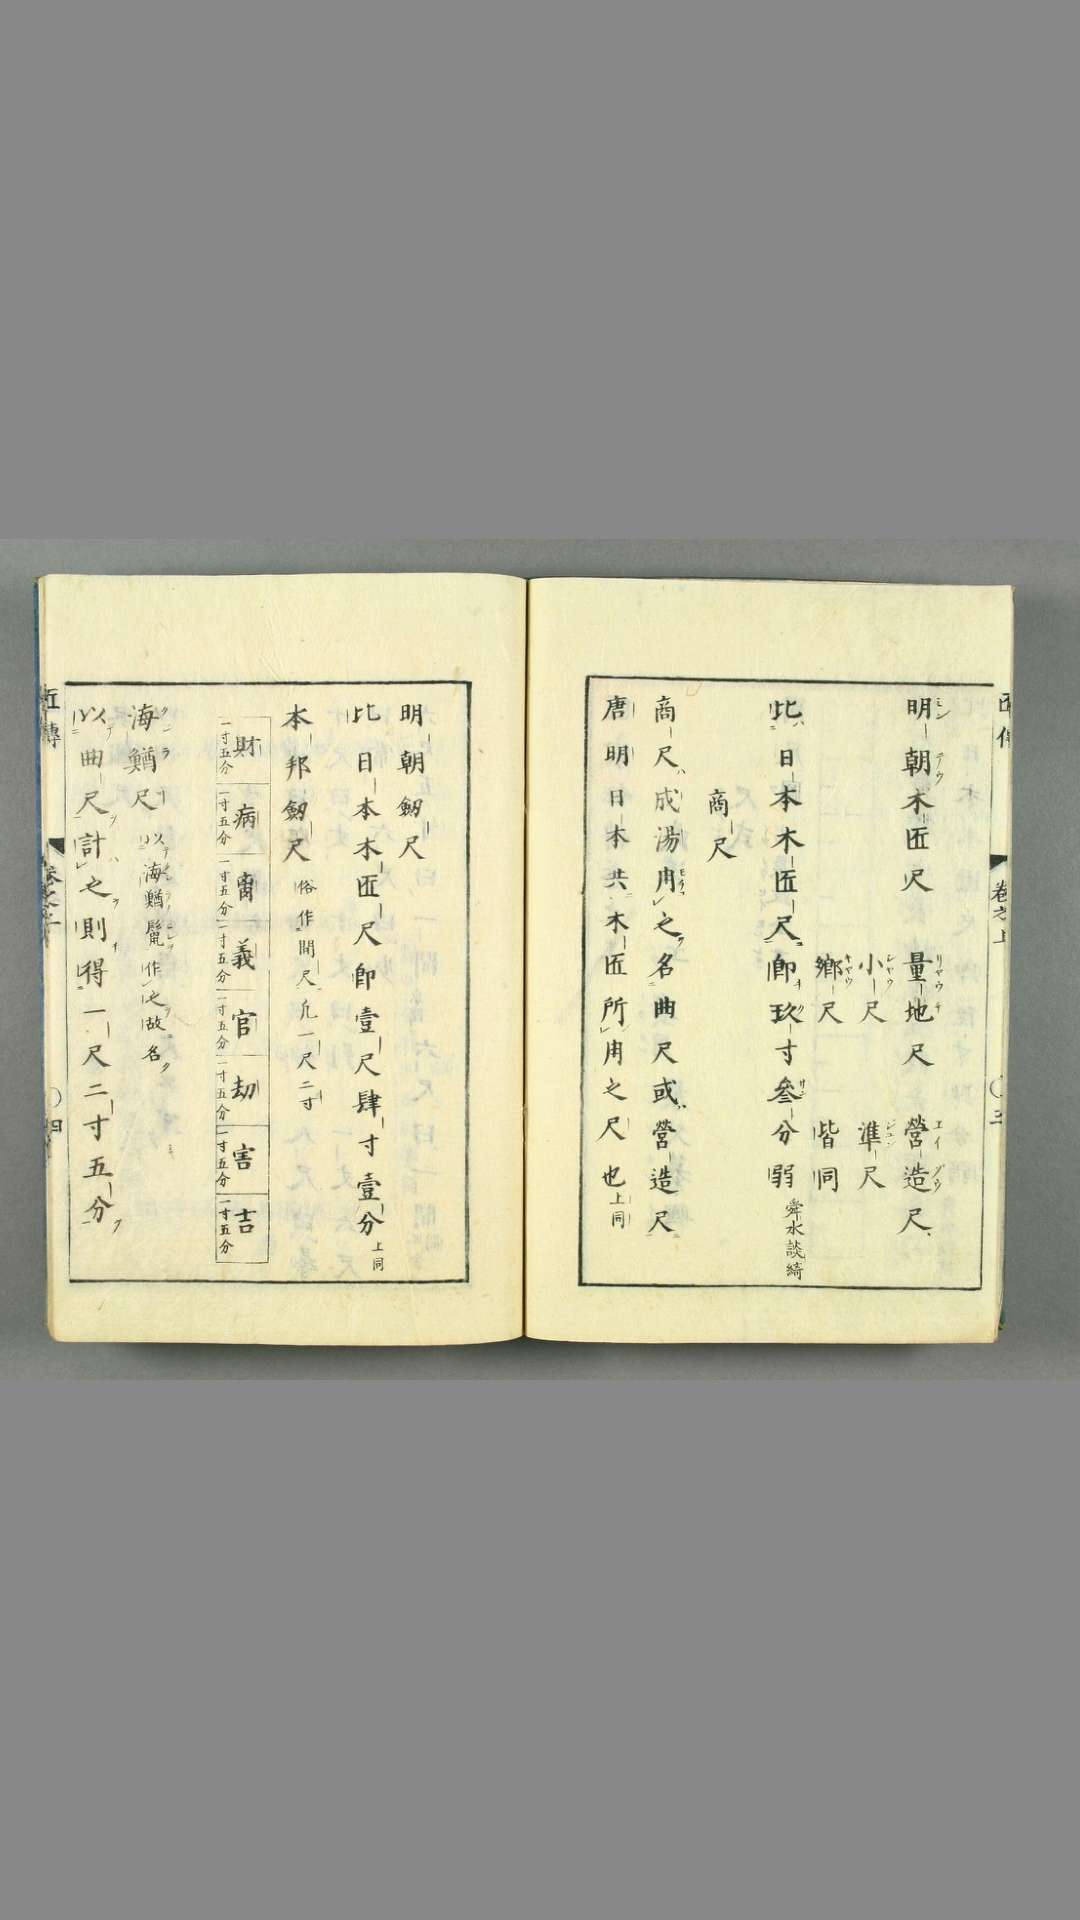 明朝木匠尺 量地尺 營造尺
小尺 準尺
鄉尺 皆同
此日本木匠尺即玖寸叁分弱 舜水談綺
商尺
商尺成湯用之名曲尺或營造尺
唐明日本共木匠所用之尺也 上同
卷之上
三
明朝劔尺
比日本木匠尺即壹尺肆寸壹分 上同
本邦劔尺 俗作間尺凢一尺二寸
財 病 离 義 官 劫 害 吉
一寸五分 一寸五分 一寸五分 一寸五分 一寸五分 一寸五分 一寸五分 一寸五分
海鰌尺 以海鰌鬚作之故名
以曲尺計之則得一尺二寸五分
匠傳
四